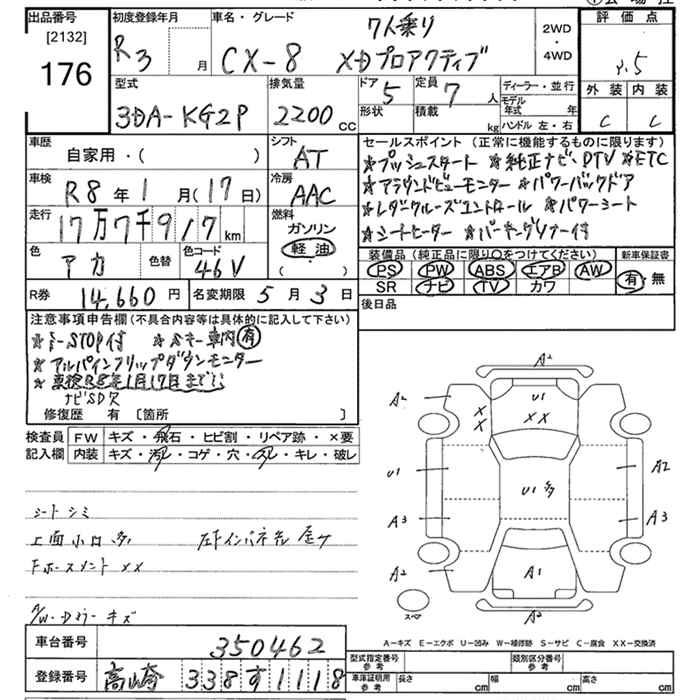 出品番号 [2132] 176
初度登録年月 R3 月
車名・グレード 7人乗り CX-8 XDプロアクティブ
2WD・4WD
評価点 4.5
外装 内装
C C
型式 3DA-KG2P
排気量 2200 cc
ドア 5
形状
定員 7 人
積載 kg
ディーラー・並行
モデル年式 年
ハンドル 左・右
車歴 自家用・( )
シフト AT
車検 R8 年 1 月(17日)
冷房 AAC
走行 17万7千917 km
燃料 ガソリン 軽油 ( )
色 アカ
色替
色コード 46V
R券 14,660 円
名変期限 5 月 3 日
セールスポイント (正常に機能するものに限ります)
★プッシュスタート ★純正ナビ・DTV ★ETC
★アラウンドビューモニター ★パワーバックドア
★レダークルーズコントロール ★パワーシート
★シートヒーター ★パーキングソナー付
装備品(純正品に限り○をつけてください)
PS PW ABS エアB AW
SR ナビ TV カワ
新車保証書 有・無
後日品
注意事項申告欄(不具合内容等は具体的に記入して下さい)
★i-STOP付 ★Sキー 車内有
★アルパインフリップダウンモニター
★車検R8年1月17日までに
ナビSD欠
修復歴 有 [箇所 ]
検査員記入欄
FW キズ・飛石・ヒビ割・リペア跡・×要
内装 キズ・汚レ・コゲ・穴・スレ・キレ・破レ
シートシミ
上面小口多 左Fインパネ先曲ゲ
Fホースメント XX
A/W・Dメラーキズ
A2
A2 X X U1 XX
U1 U1多 A2
A3 A3
A2 A1
スペア A2
A-キズ E-エクボ U-凹み W-補修跡 S-サビ C-腐食 XX-交換済
車台番号 350462
登録番号 高崎 338す1118
型式指定番号 参考
類別区分番号 参考
車庫証明用 参考 長さ cm 幅 cm 高さ cm